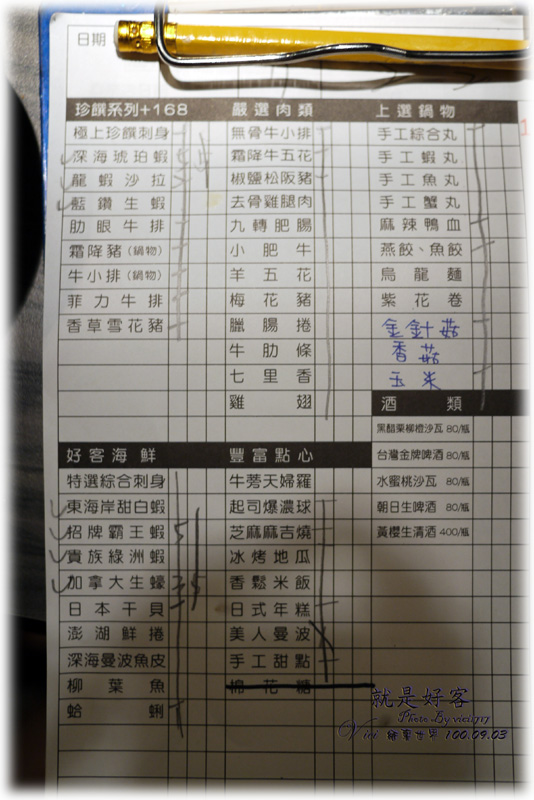 日期
珍饌系列+168
極上珍饌刺身
深海琥珀蝦
龍蝦沙拉
藍鑽生蝦
肋眼牛排
霜降豬(鍋物)
牛小排(鍋物)
菲力牛排
香草雪花豬
嚴選肉類
無骨牛小排
霜降牛五花
椒鹽松阪豬
去骨雞腿肉
九轉肥腸
小肥牛
羊五花
梅花豬
臘腸捲
牛肋條
七里香
雞翅
上選鍋物
手工綜合丸
手工蝦丸
手工魚丸
手工蟹丸
麻辣鴨血
燕餃、魚餃
烏龍麵
紫花卷
金針菇
香菇
玉米
酒類
黑醋栗柳橙沙瓦 80/瓶
台灣金牌啤酒 80/瓶
水蜜桃沙瓦 80/瓶
朝日生啤酒 80/瓶
黃櫻生清酒 400/瓶
好客海鮮
特選綜合刺身
東海岸甜白蝦
招牌霸王蝦 5
貴族綠洲蝦
加拿大生蠔 35
日本干貝
澎湖鮮捲
深海曼波魚皮
柳葉魚
蛤蜊
豐富點心
牛蒡天婦羅
起司爆濃球
芝麻麻吉燒
冰烤地瓜
香鬆米飯
日式年糕
美人曼波
手工甜點
棉花糖
就是好客
Photo By vici1717
Vici 繪事世界 100.09.03